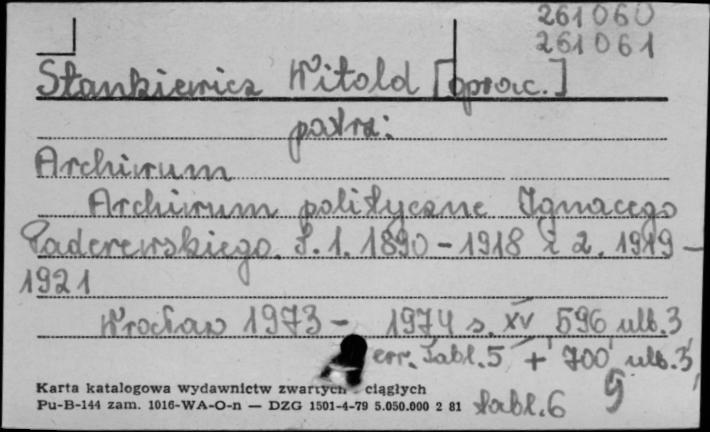 261060
261061
Stankiewicz Witold [oprac.]
patrz:
Archiwum
Archiwum polityczne Ignacego
Paderewskiego. T. 1. 1890-1918 T. 2. 1919-
1921
Wrocław 1973- 1974 s. XV 596 ulb. 3
err. tabl. 5 + 700 ulb. 3
Karta katalogowa wydawnictw zwartych ciągłych
Pu-B-144 zam. 1016-WA-O-n — DZG 1501-4-79 5.050.000 2 81 tabl. 6